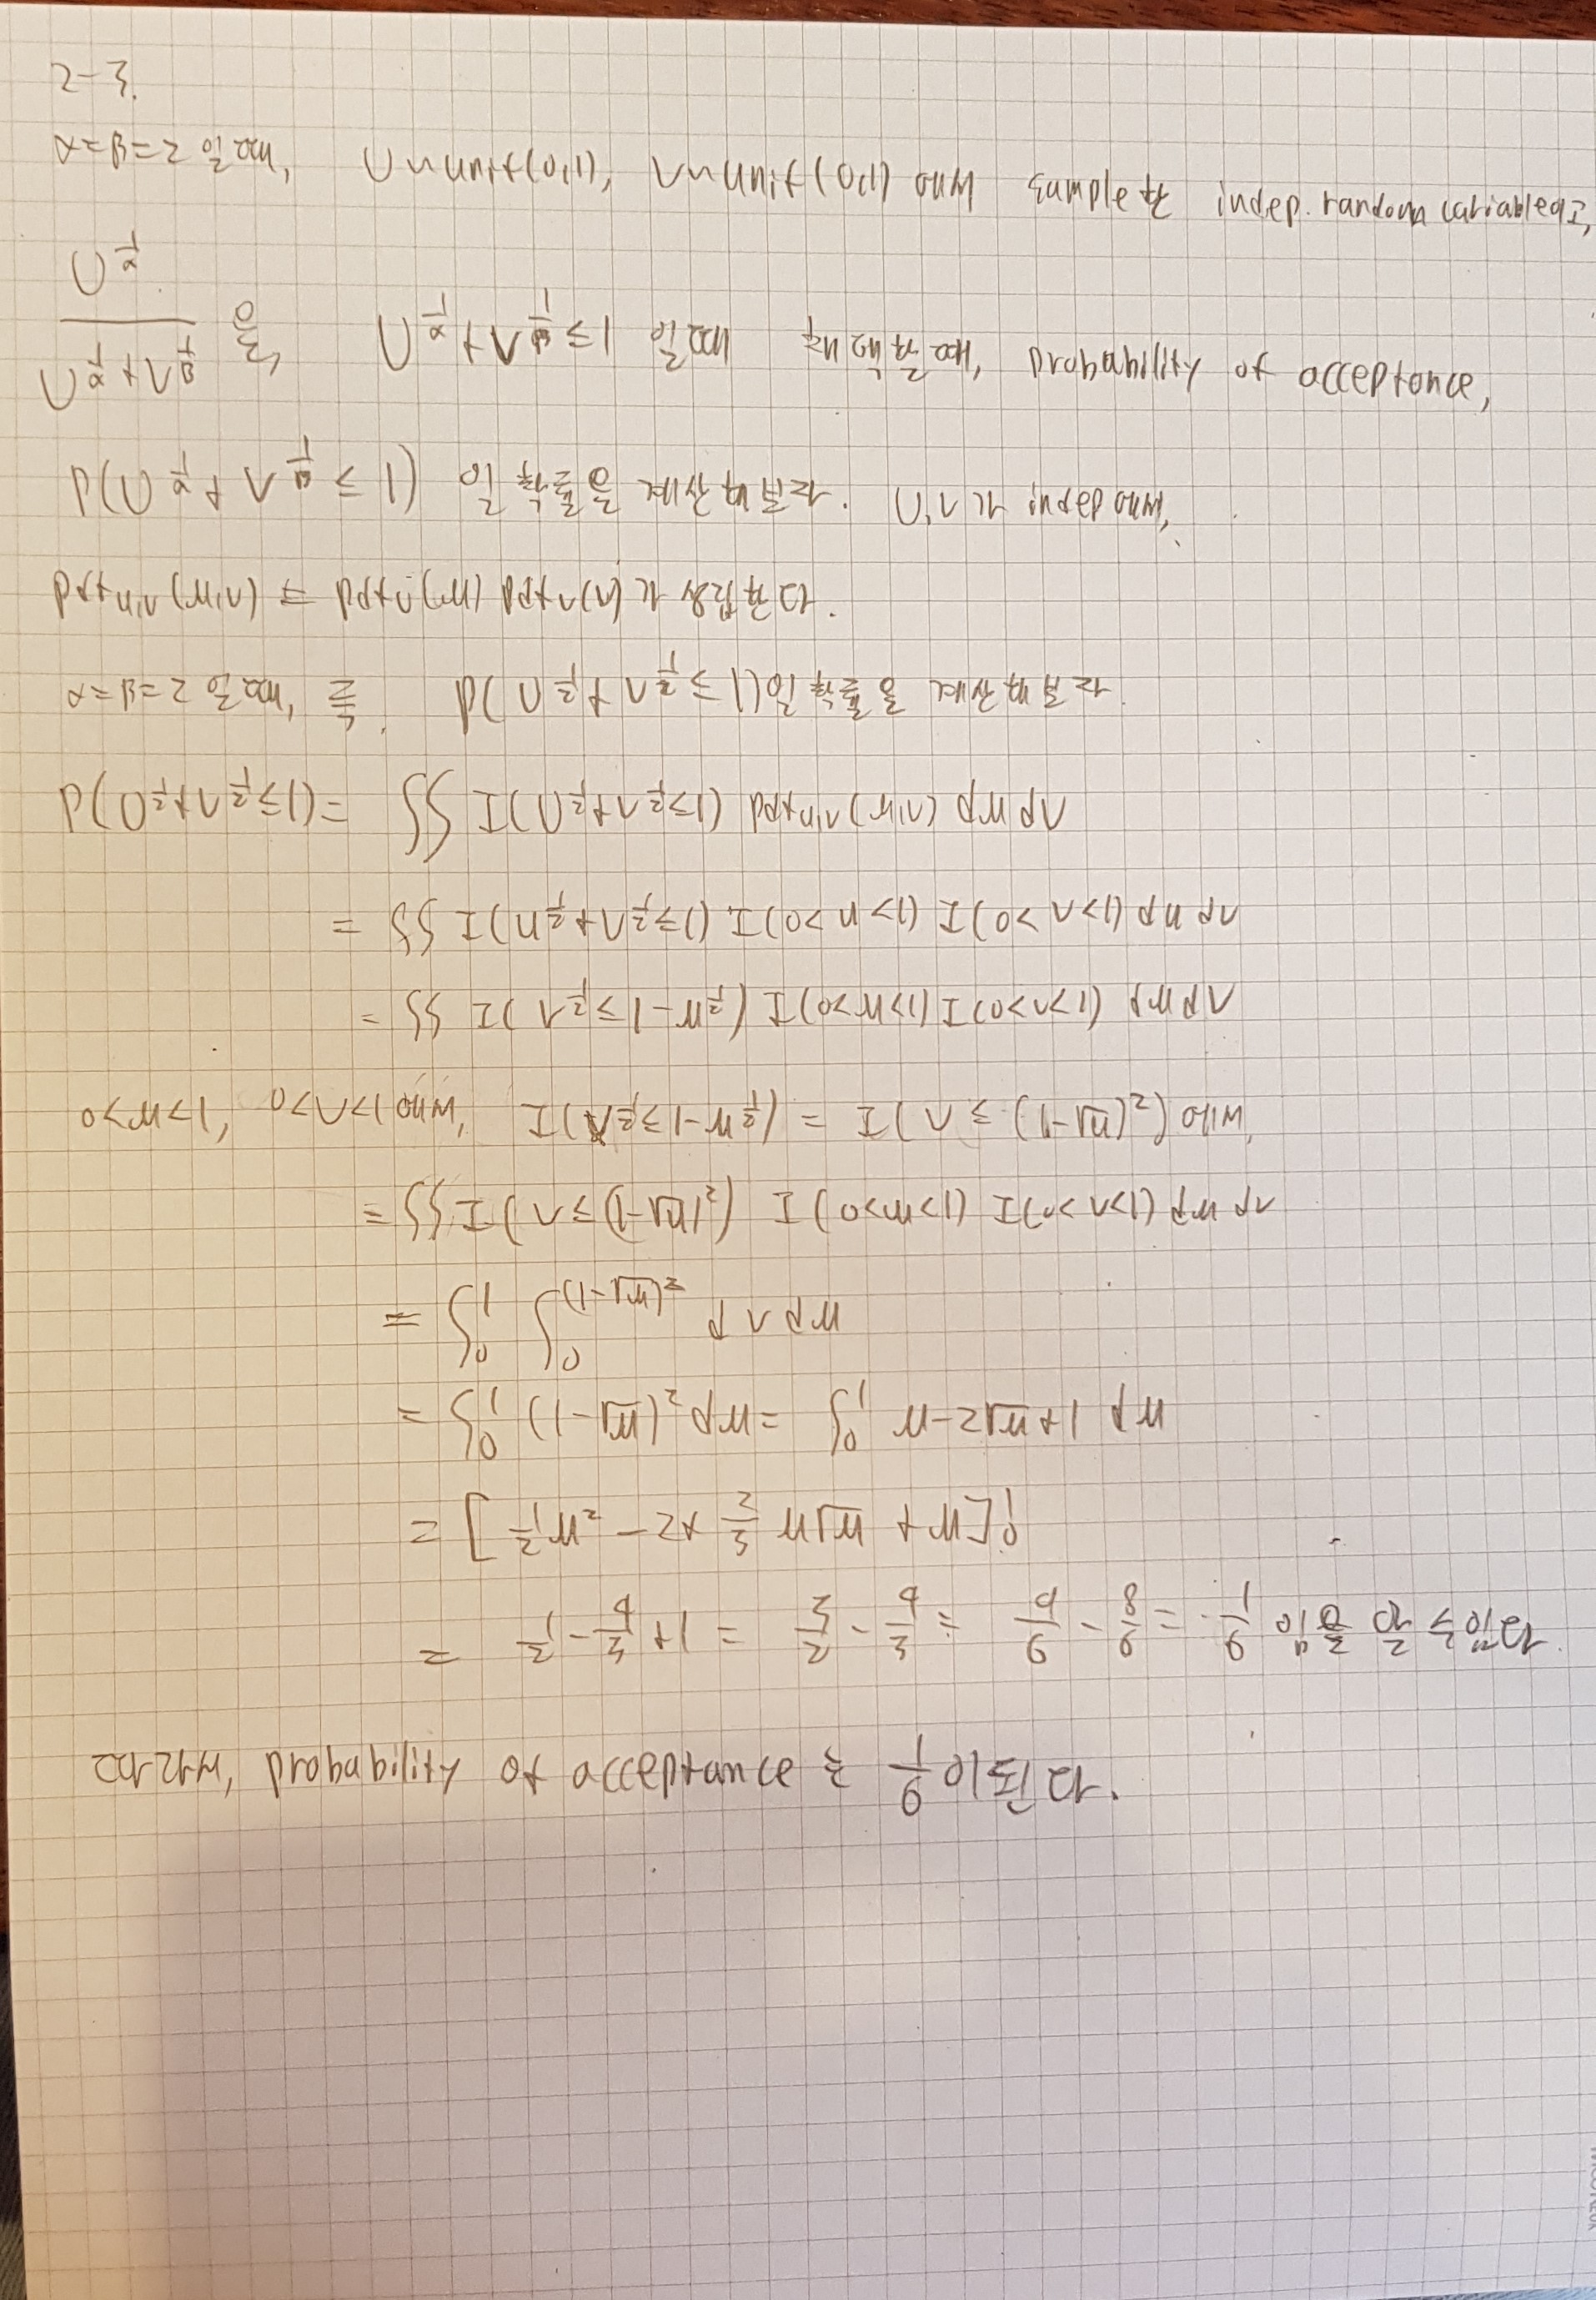 2-3.
α=β=2 일때, U~unif(0,1), V~unif(0,1) 에서 sample한 indep. random variable이고,
U^{1/α} / (U^{1/α}+V^{1/β}) 을, U^{1/α}+V^{1/β} ≤ 1 일때 채택할때, probability of acceptance,
P(U^{1/α}+V^{1/β} ≤ 1) 일 확률을 계산해보자. U,V가 indep에서,
pdf_{U,V}(u,v) = pdf_U(u) pdf_V(v)가 성립한다.
α=β=2 일때, 즉, P(U^{1/2}+V^{1/2} ≤ 1)일 확률을 계산해보자.
P(U^{1/2}+V^{1/2}≤1) = ∬ I(U^{1/2}+V^{1/2}≤1) pdf_{U,V}(u,v) du dv
= ∬ I(u^{1/2}+v^{1/2}≤1) I(0<u<1) I(0<v<1) du dv
= ∬ I(v^{1/2}≤1-u^{1/2}) I(0<u<1) I(0<v<1) du dv
0<u<1, 0<v<1에서, I(v^{1/2}≤1-u^{1/2}) = I(v ≤ (1-√u)^2)에서,
= ∬ I(v≤(1-√u)^2) I(0<u<1) I(0<v<1) du dv
= ∫_0^1 ∫_0^{(1-√u)^2} dv du
= ∫_0^1 (1-√u)^2 du = ∫_0^1 u-2√u+1 du
= [1/2 u^2 - 2× 2/3 u√u + u]_0^1
= 1/2 - 4/3 + 1 = 3/2 - 4/3 = 9/6 - 8/6 = 1/6 임을 알 수 있다.
따라서, probability of acceptance는 1/6이 된다.